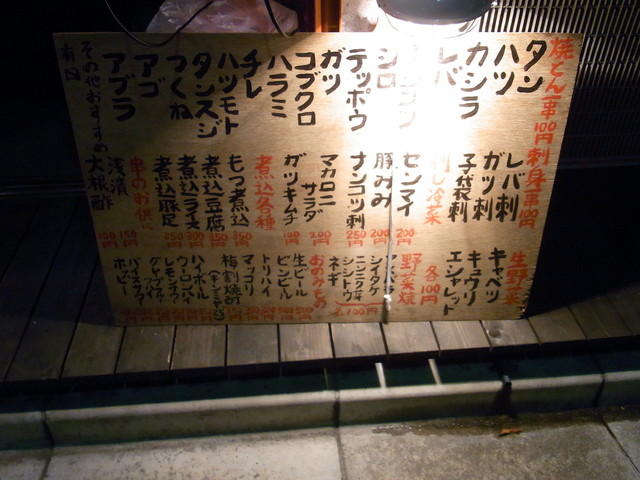 焼とん一串100円
タン
ハツ
カシラ
レバ
シロ
テッポウ
ガツ
コブクロ
ハラミ
チレ
ハツモト
タンスジ
つくね
アゴ
アブラ
その他おすすめ
有四
刺身
レバ刺
ガツ刺
子袋刺
冷菜
センマイ 200
豚みみ 200
ナンコツ刺 250
マカロニサラダ 200
ガツキムチ
煮込各種
もつ煮込 350
煮込豆腐
煮込ライス
煮込豚足
串のお供に
浅漬 150円
大根酢 100円
生野菜
キャベツ
キュウリ
エシャレット
各100円
野菜焼
シイタケ
ニンニク
シシトウ
ネギ
おのみもの
生ビール
ビンビール
トリハイ
マッコリ
梅割焼酎
ハイボール
ウーロンハイ
レモンサワー
バイスサワー
ホッピー